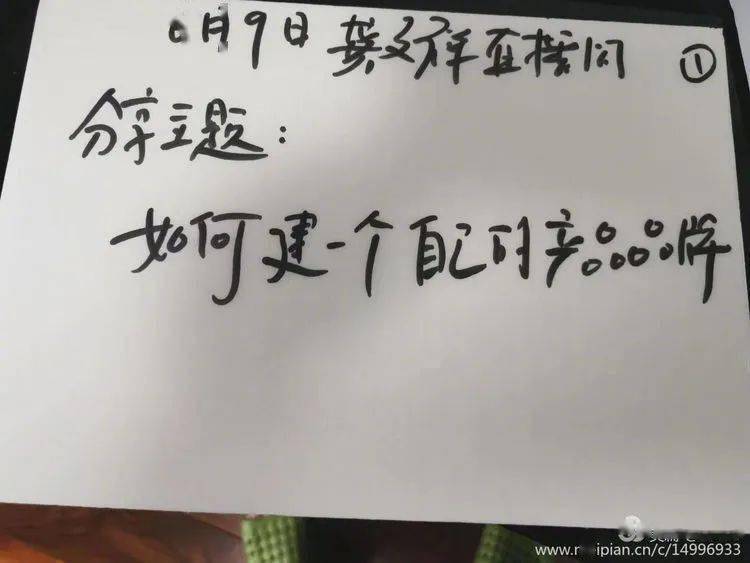 6月9日 龚文祥直播间 ①
分享主题:
如何建一个自己的产品品牌
美篇
www.meipian.cn/c/14996933